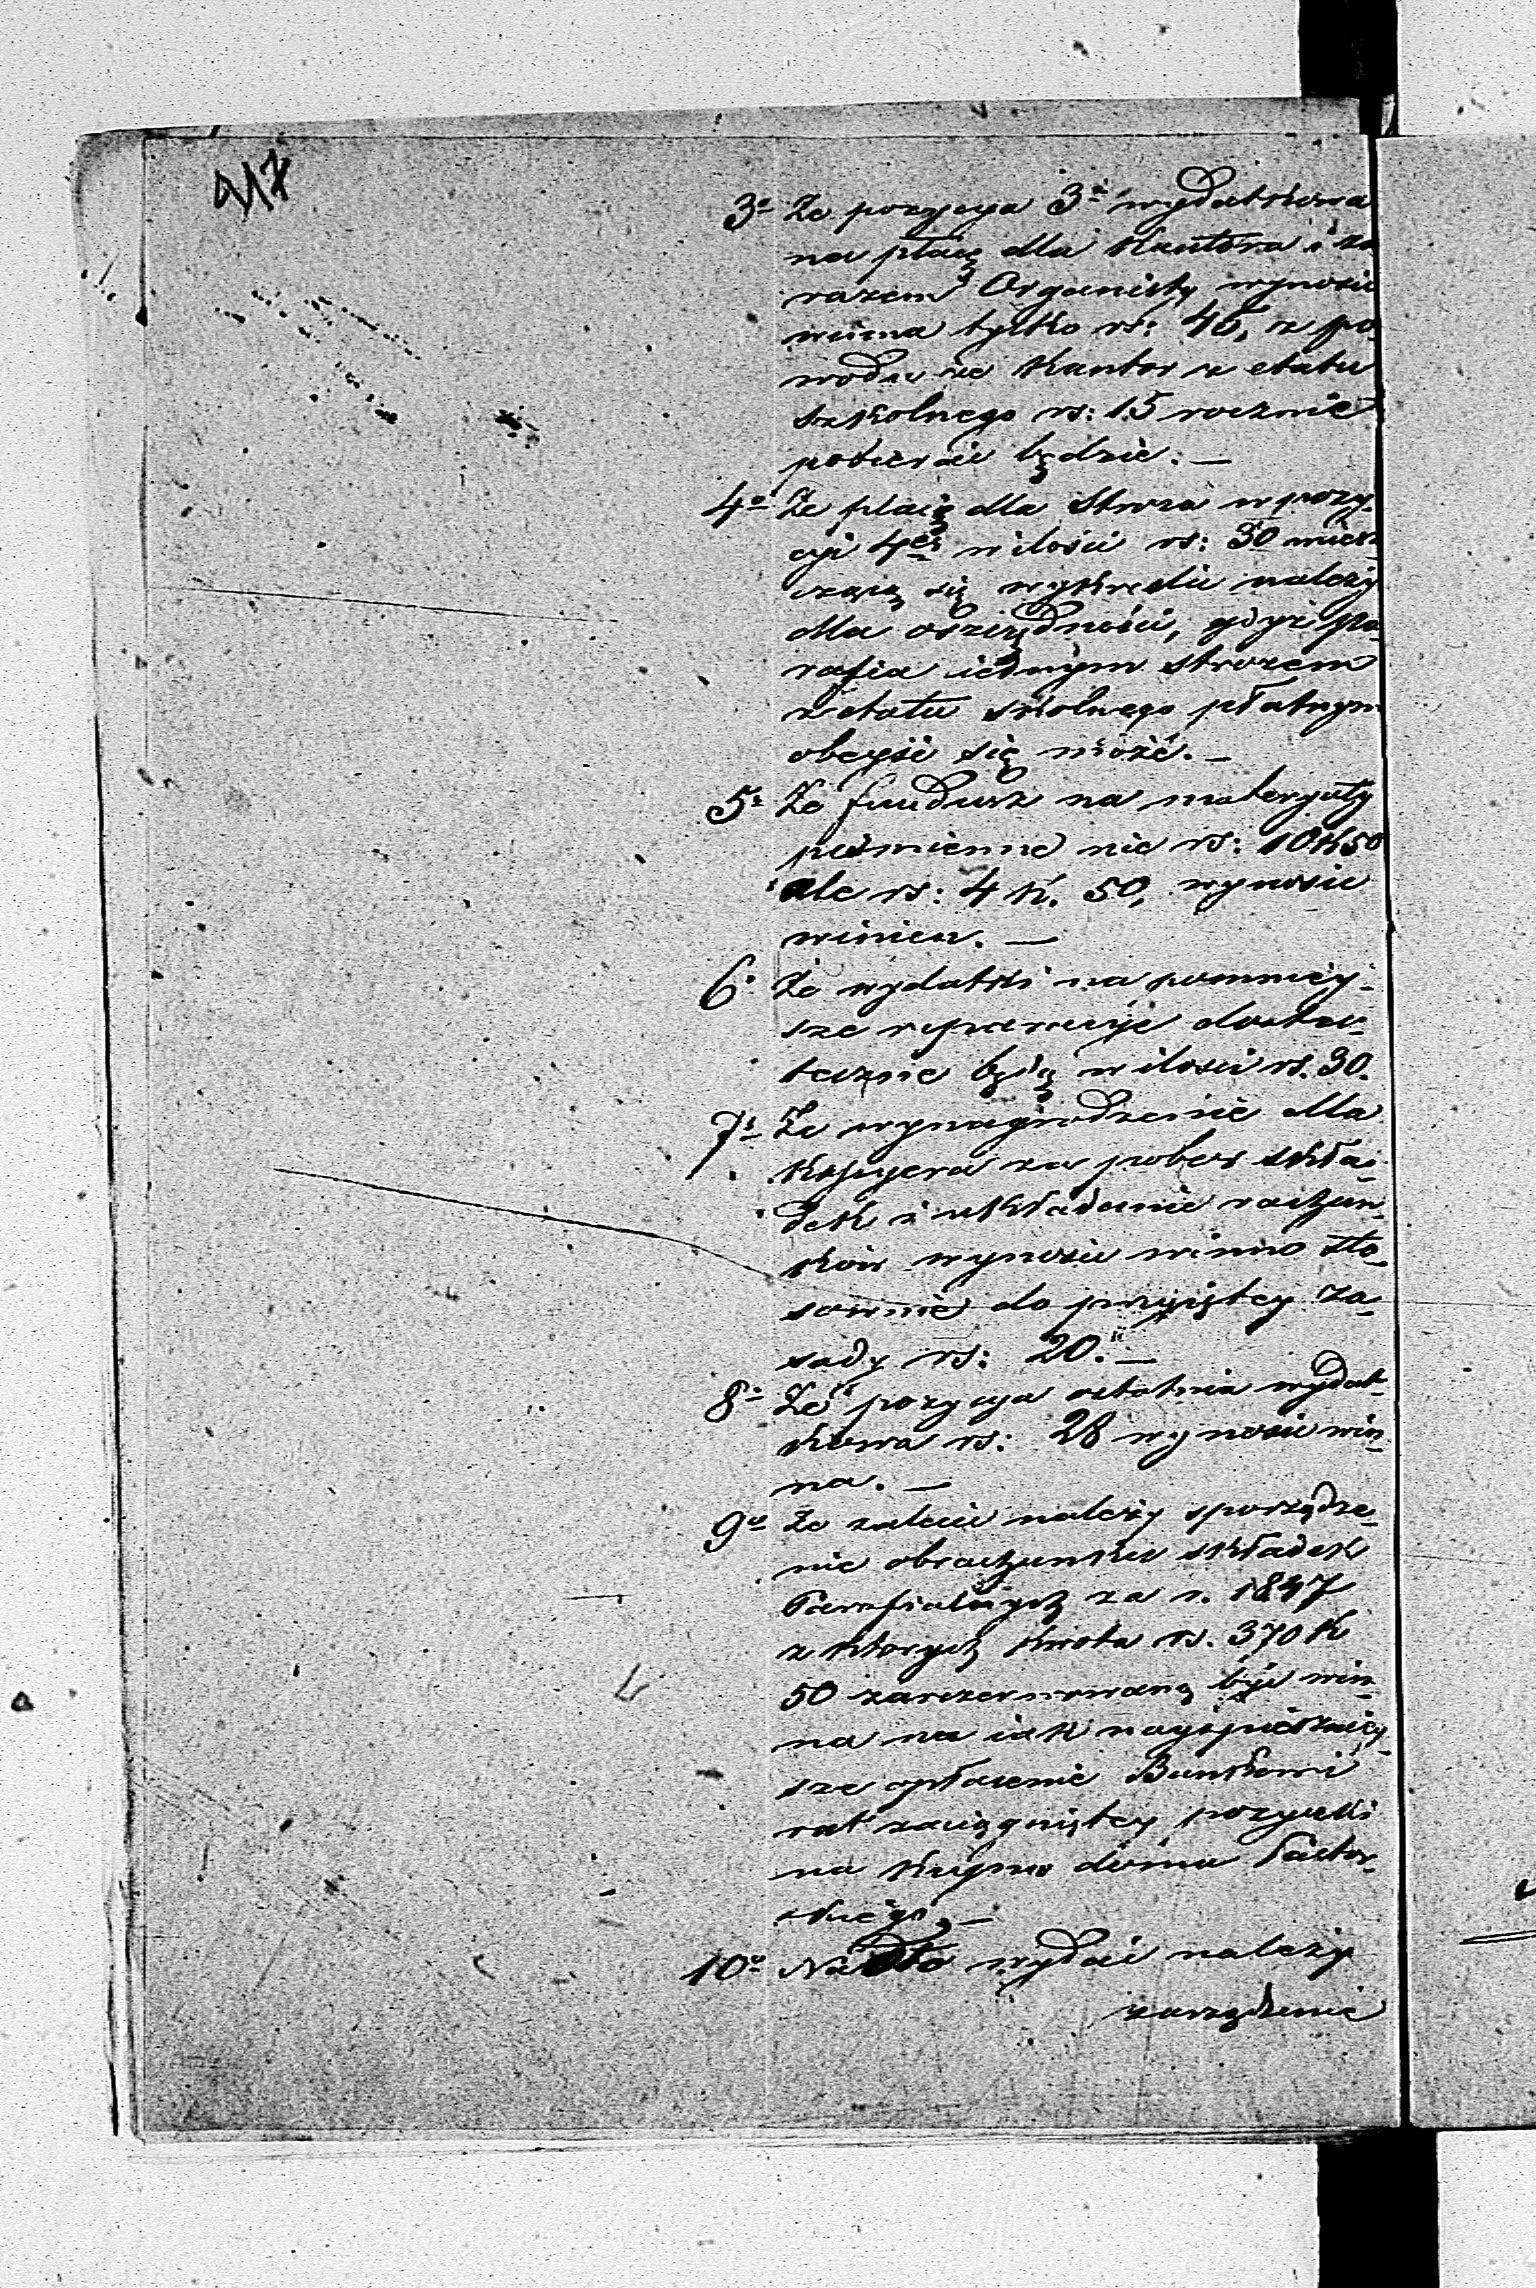 917
3o Że pozycya 3a wydatkowa
na płacę dla Kantora i za
razem Organisty wynosić
winna tylko rs: 45, z po-
wodu że Kantor z etatu
szkolnego rs: 15 rocznie
pobierać będzie. —
4o Że płacę dla Stroza w pozy-
cyi 4ej w ilości rs: 30 miesz-
czącą się wykreślić należy
dla oszczędności, gdyż Pa-
rafia iednym strozem
z etatu szkolnego płatnym
obejść się może. —
5o Że fundusz na materyały
piśmienne nie rs: 10 k 50
ale rs: 4 k. 50, wynosić
winien. —
6o Że wydatki na pomniey-
sze reparacyje dosta-
teczne będą w ilości rs. 30.
7o Że wynagrodzenie dla
Kassyera za pobór skła-
dek i układanie rachun-
ków wynosić winno sto-
sownie do przyiętey za-
sady rs: 20. —
8o Że pozycya ostatnia wydat-
kowa rs: 28 wynosić win-
na. —
9o Że zalecić należy sporządze-
nie obrachunku składek
Parafialnych za r. 1847
z których kwota rs. 370 k
50 zarezerwowaną być win-
na na iak nayspieszniey-
sze opłacenie Bankowi
rat zaciągniętey pozyczki
na kupno domu Pastor-
skiego, —
10o Nadto wydać należy
zarządzenie